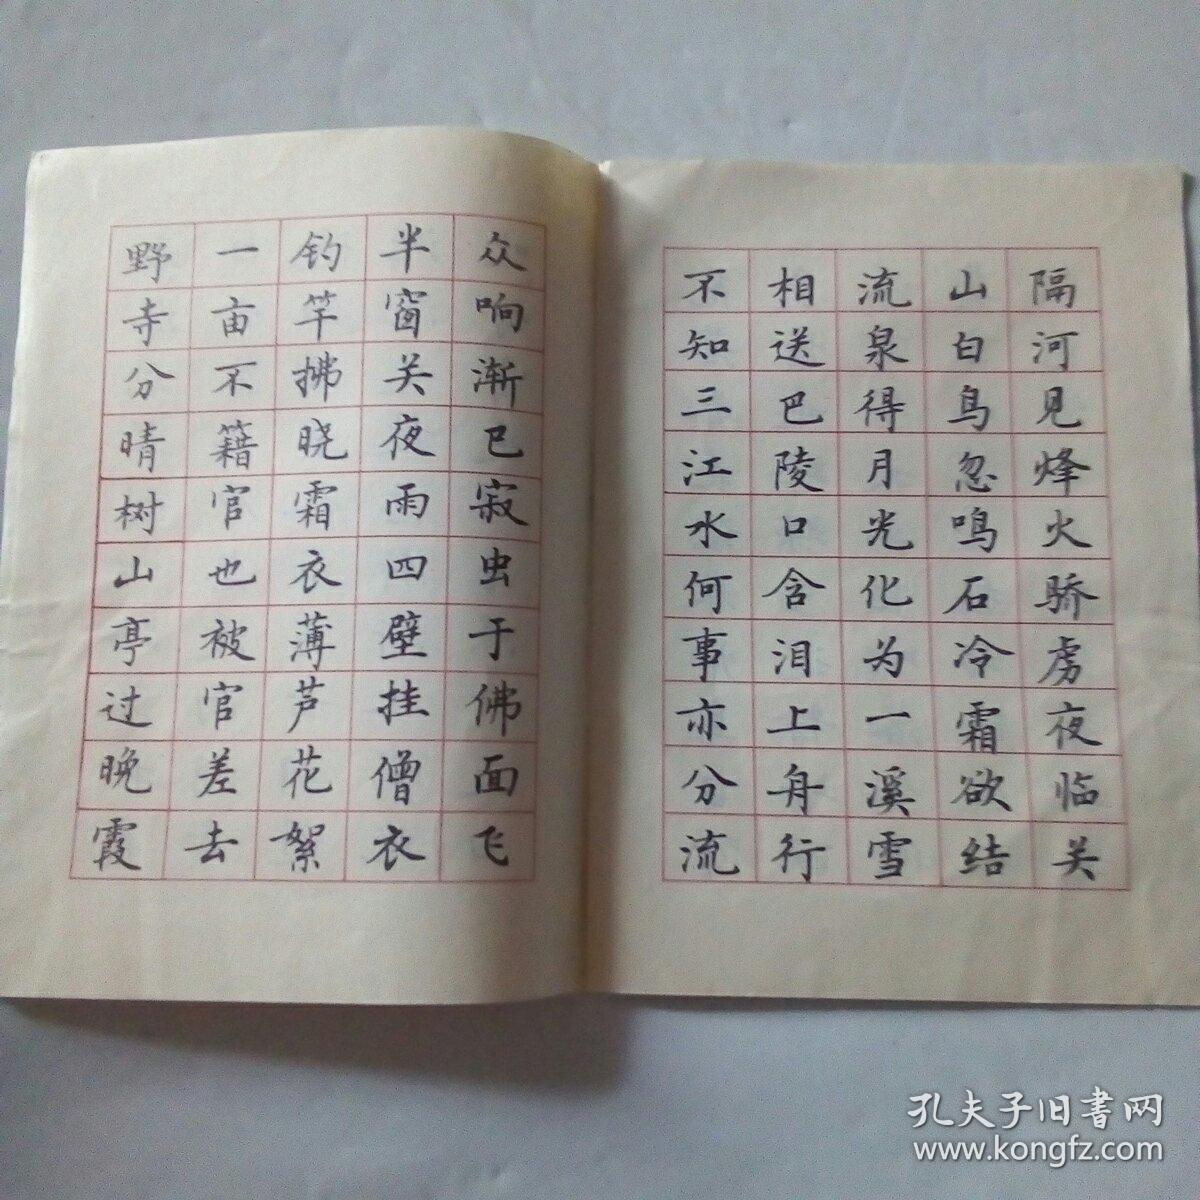 隔河见烽火骄虏夜临关
山白鸟忽鸣石冷霜欲结
流泉得月光化为一溪雪
相送巴陵口含泪上舟行
不知三江水何事亦分流
众响渐已寂虫于佛面飞
半窗关夜雨四壁挂僧衣
钓竿拂晓霜衣薄芦花絮
一亩不籍官也被官差去
野寺分晴树山亭过晚霞
孔夫子旧书网
www.kongfz.com